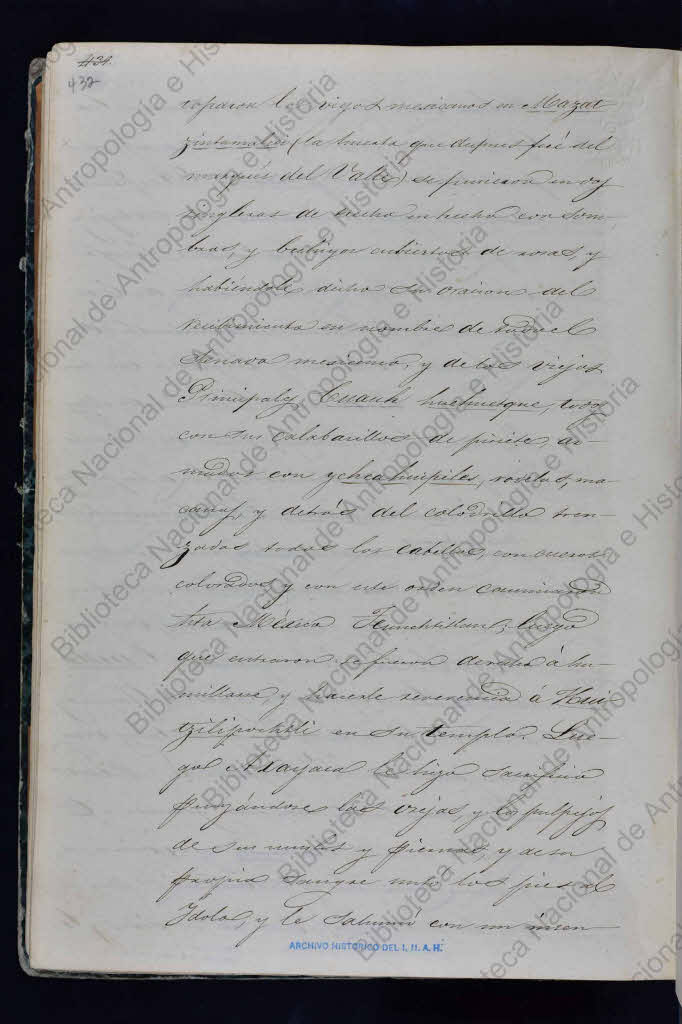 434.
432
toparon los viejos mexicanos en Mazat
zintamalco (la huerta que despues fué del
marqués del Valle) se pusieron en dos
ringleras de trecho en trecho con som
bras, y bestidos cubiertos de rosas, y
habiéndole dicho su oracion del
recibimiento en nombre de todo el
Senado mexicano, y de los viejos
Principales Cuauh huehuetque, todos
con sus calabacillos de piciete, ar
mados con ychcahuipiles, rodelas, ma
canas, y detrás del colodrillo tren
zados todos los cabellos, con cueros
colorados, y con este orden caminaron
hta México Tenuchtitlan; luego
que entraron se fueron derecho á hu
millarse, y hacerle reverencia á Hui
tzilipochtli en su templo. Lue
go Axayaca le hizo sacrificio
punzándose las orejas, y los pulpejos
de sus muslos y piernas, y de su
propia sangre untó los pies al
Idolo, y le sahumó con un incen
ARCHIVO HISTORICO DEL I. N. A. H.
Biblioteca Nacional de Antropología e Historia